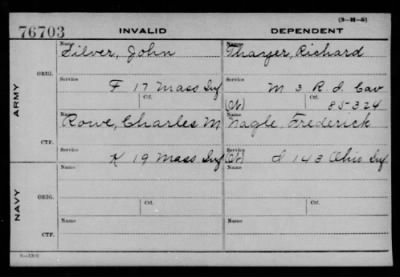 (3-H-5)
76703 INVALID DEPENDENT
Name Name
Silver, John Thayer, Richard
ARMY ORIG. Service Service
F 17 Mass Inf M 3 R. I. Cav
Ctf. (W) Ctf. 85-324
Name Name
Rowe, Charles M Nagle, Frederick
CTF. Service Service
K 19 Mass Inf (W) I 143 Ohio Inf
NAVY ORIG. Name Name
Ctf. Ctf.
CTF. Name Name